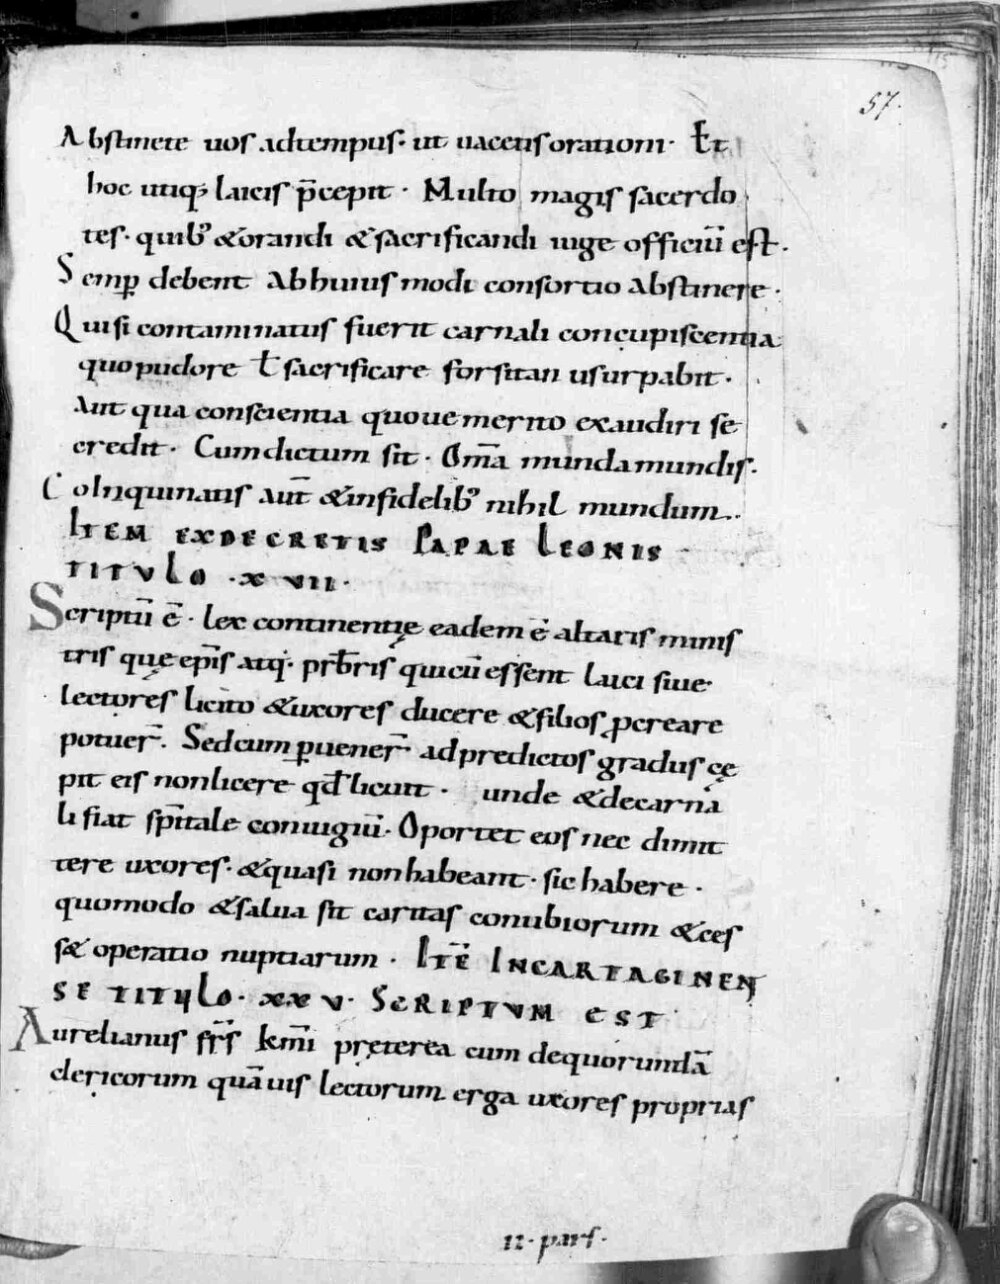 57.
Abstinete uos adtempus. ut uacetis orationi. Et
hoc utiq; laicis p̄cepit. Multo magis sacerdo
tes. quib; &orandi &sacrificandi iuge officiū est.
Semp̱ debent abhuius modi consortio abstinere.
Quisi contaminatus fuerit carnali concupiscentia
quo pudore ł sacrificare forsitan usurpabit.
Aut qua conscientia quoue merito exaudiri se
credit. Cumdictum sit. Om̄a munda mundis.
Coinquinatis aut̄ &infidelib; nihil mundum.
ITEM EXDECRETIS PAPAE LEONIS
TITVLO .XVII.
Scriptū ē. lex continentię eadem ē altaris minis
tris quę ep̄is atq; prb̄ris quicū essent laici siue
lectores licito &uxores ducere &filios ꝓcreare
potuer̄. Sedcum p̱uener̄ adpredictos gradus cę
pit eis nonlicere qđ licuit. unde &decarna
li fiat sp̄itale coniugiū. Oportet eos nec dimit
tere uxores. &quasi nonhabeant. sic habere.
quomodo &salua sit caritas conubiorum &ces
s& operatio nuptiarum. ITĒ INCARTAGINEN
SE TITVLO. XXV. SCRIPTVM EST
Aurelianus fr̄s km̄i pręterea cum dequorundā
clericorum quāuis lectorum erga uxores proprias
II. pars.